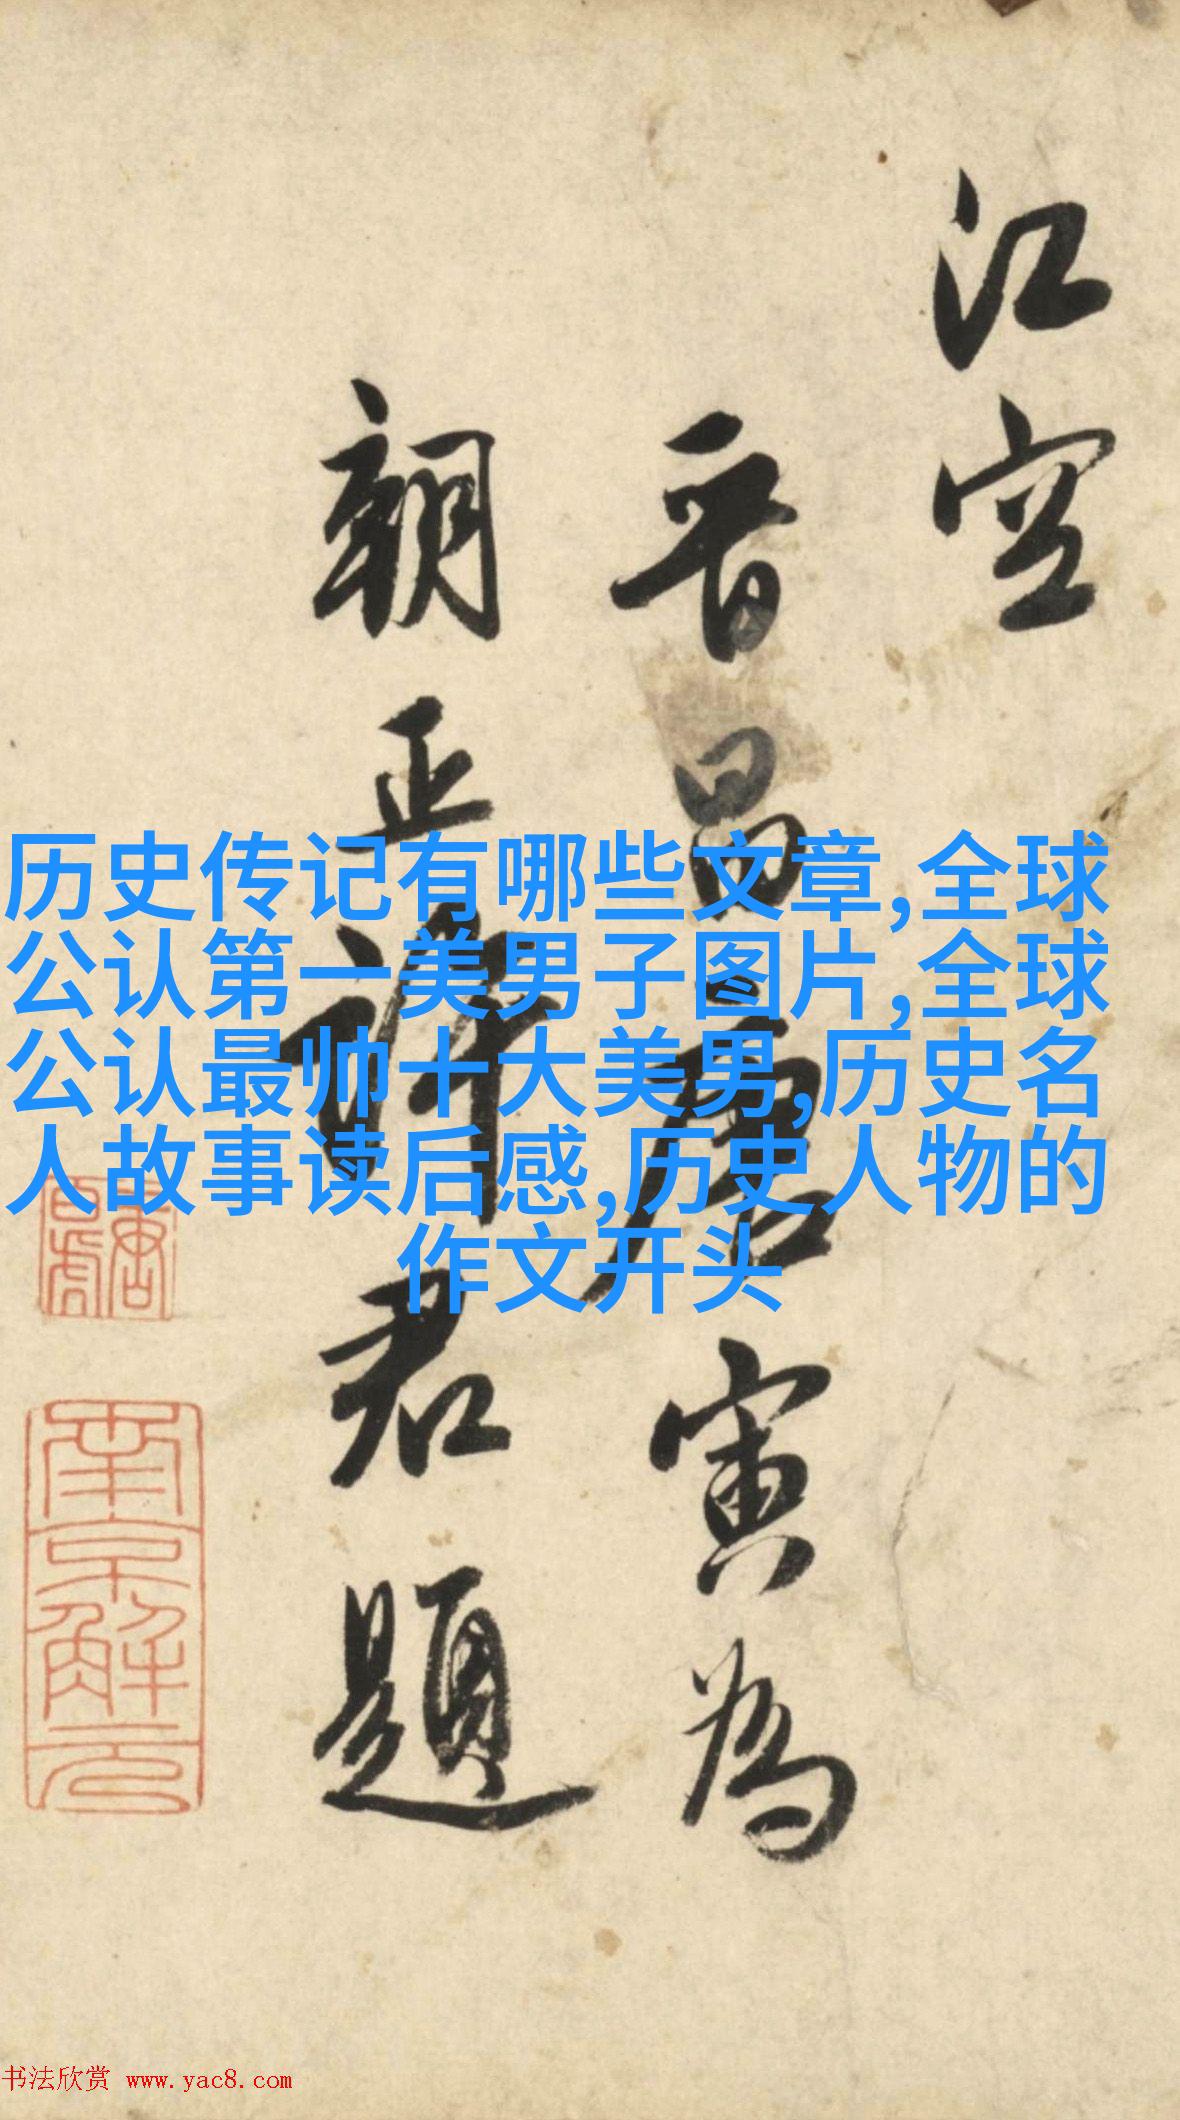 江空
晋昌唐寅為
朝正評君題
南京解元
历史传记有哪些文章,全球
公认第一美男子图片,全球
公认最帅十大美男,历史名
人故事读后感,历史人物的
作文开头
书法欣赏 www.yac8.com